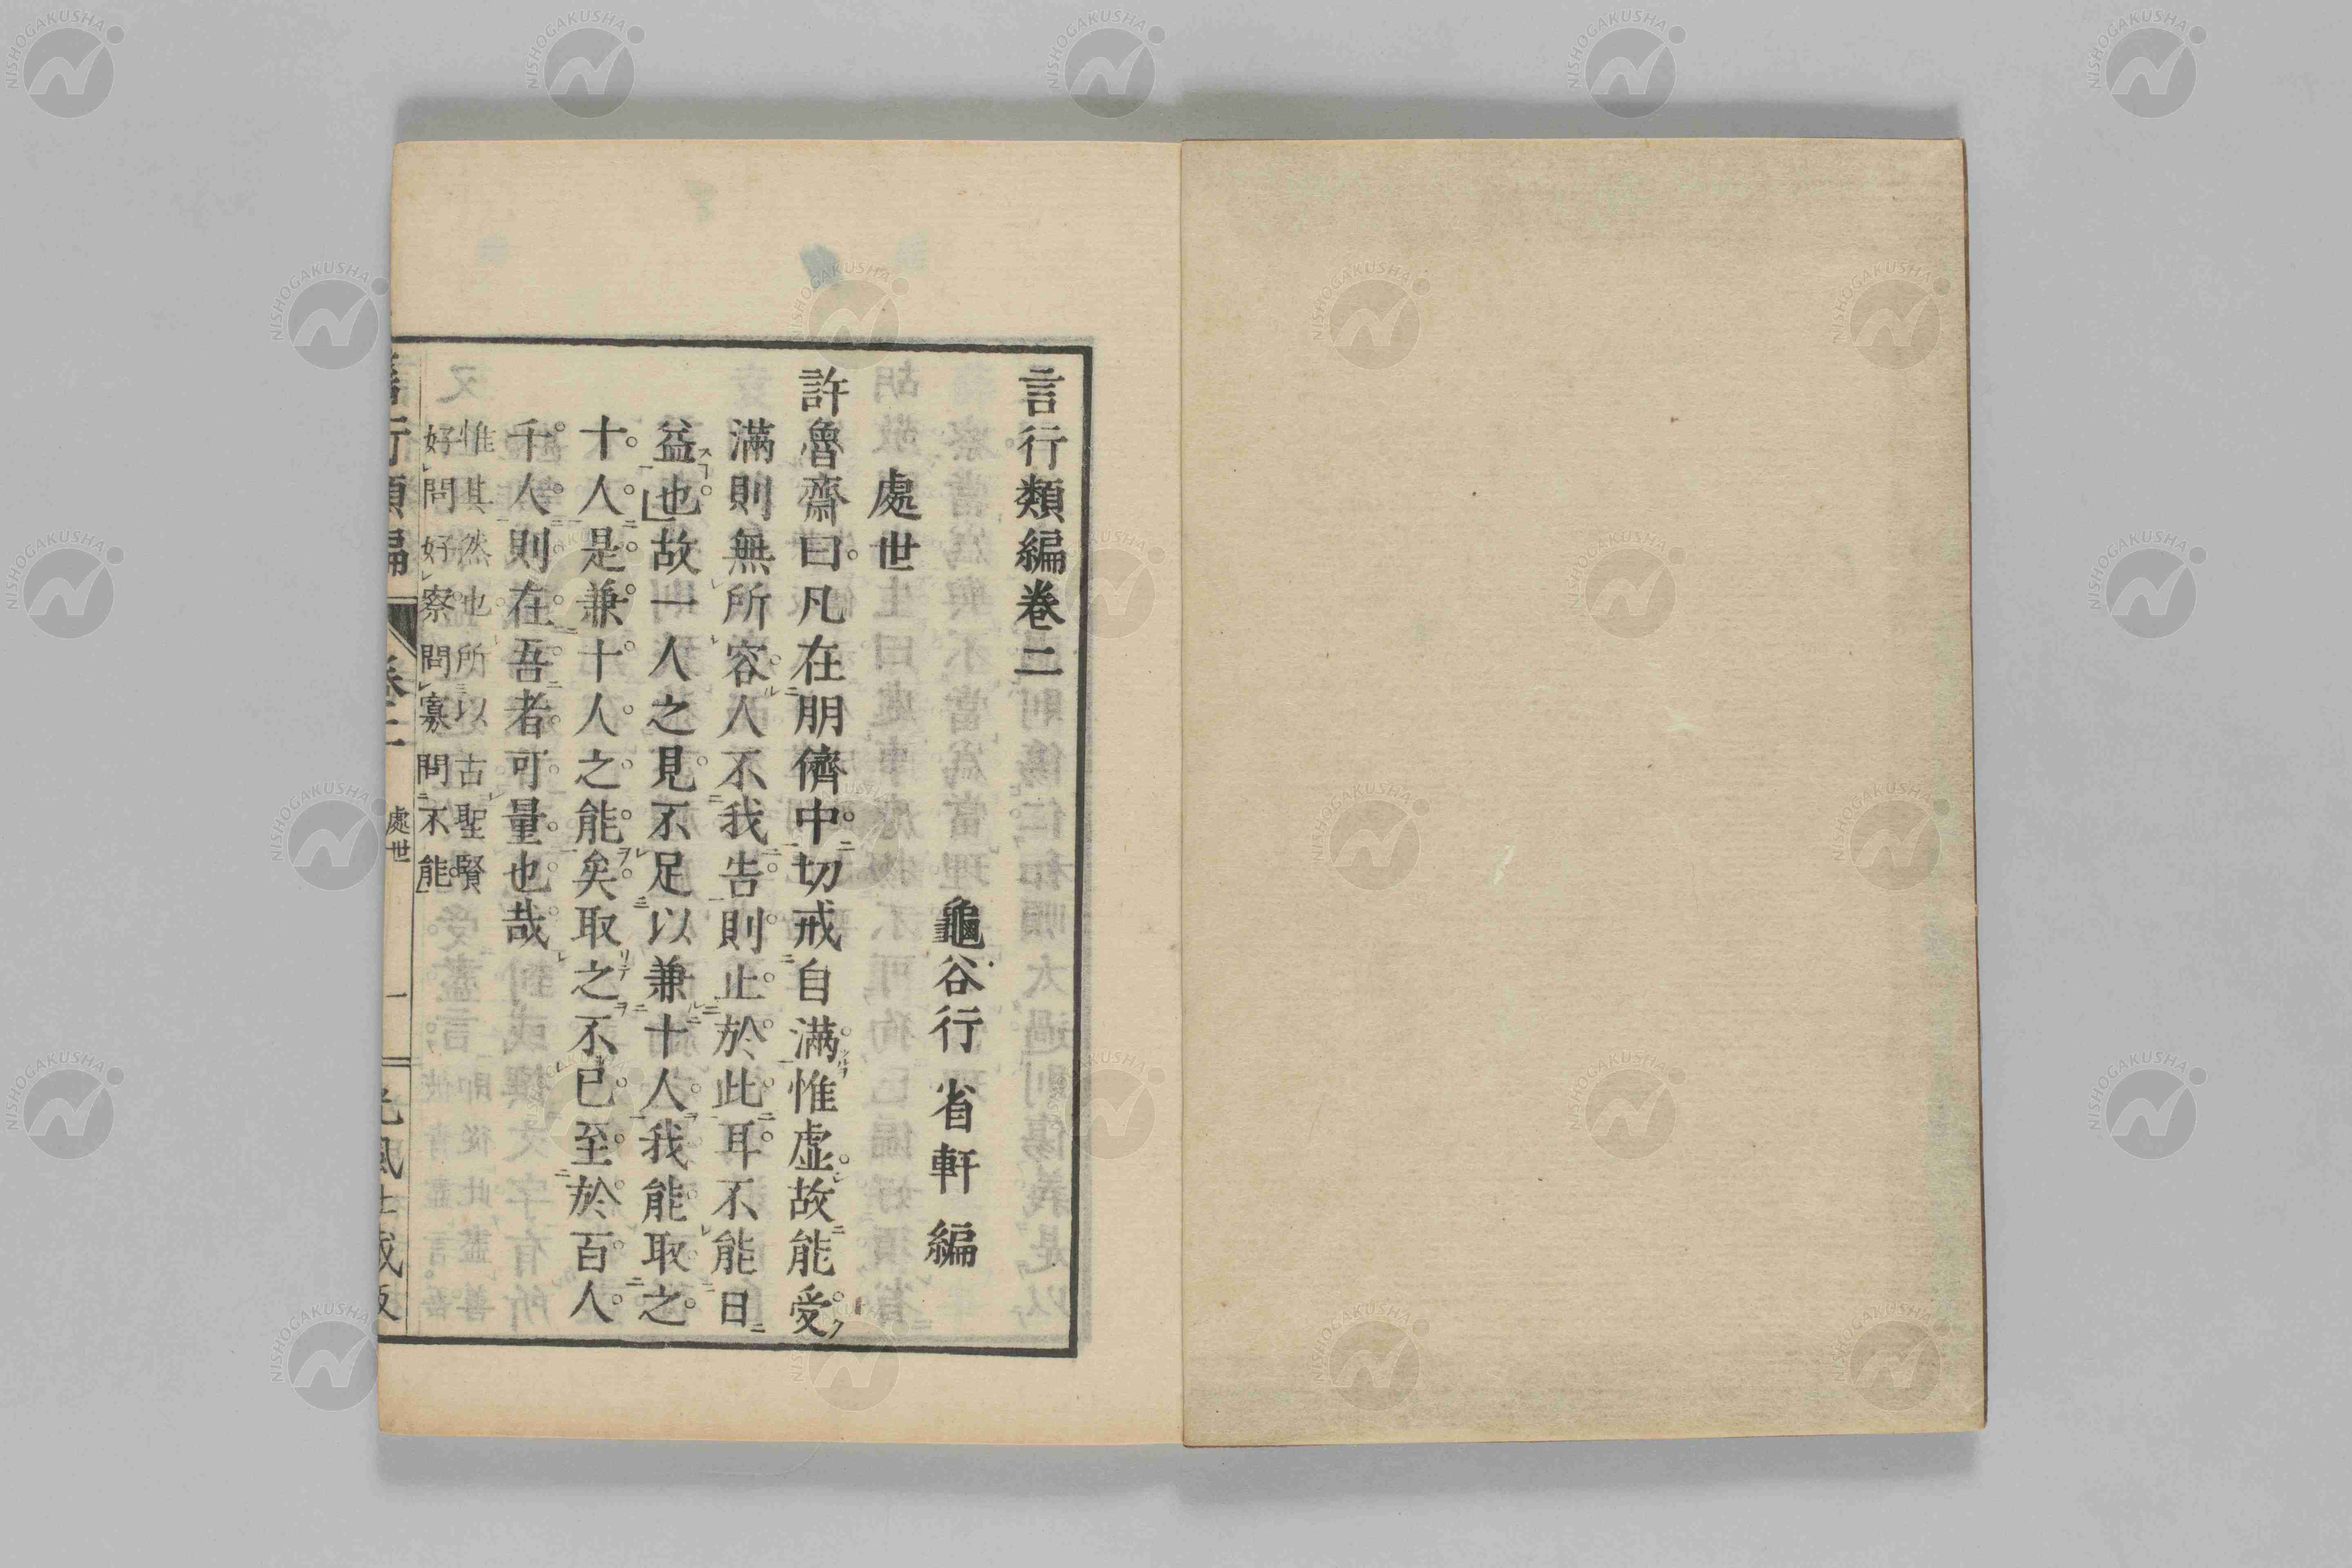 言行類編卷二
龜谷行 省軒 編
處世
許魯齋曰。凡在朋儕中。切戒自滿。惟虛。故能受。
滿則無所容。人不我告。則止於此耳。不能日
益也。故一人之見。不足以兼十人。我能取之
十人。是兼十人之能矣。取之不已。至於百人。
千人。則在吾者可量也哉。
惟其然也。所以古聖賢
好問好察。問寡問不能。
言行類編
卷二
處世
一
光風社藏版
NISHOGAKUSHA